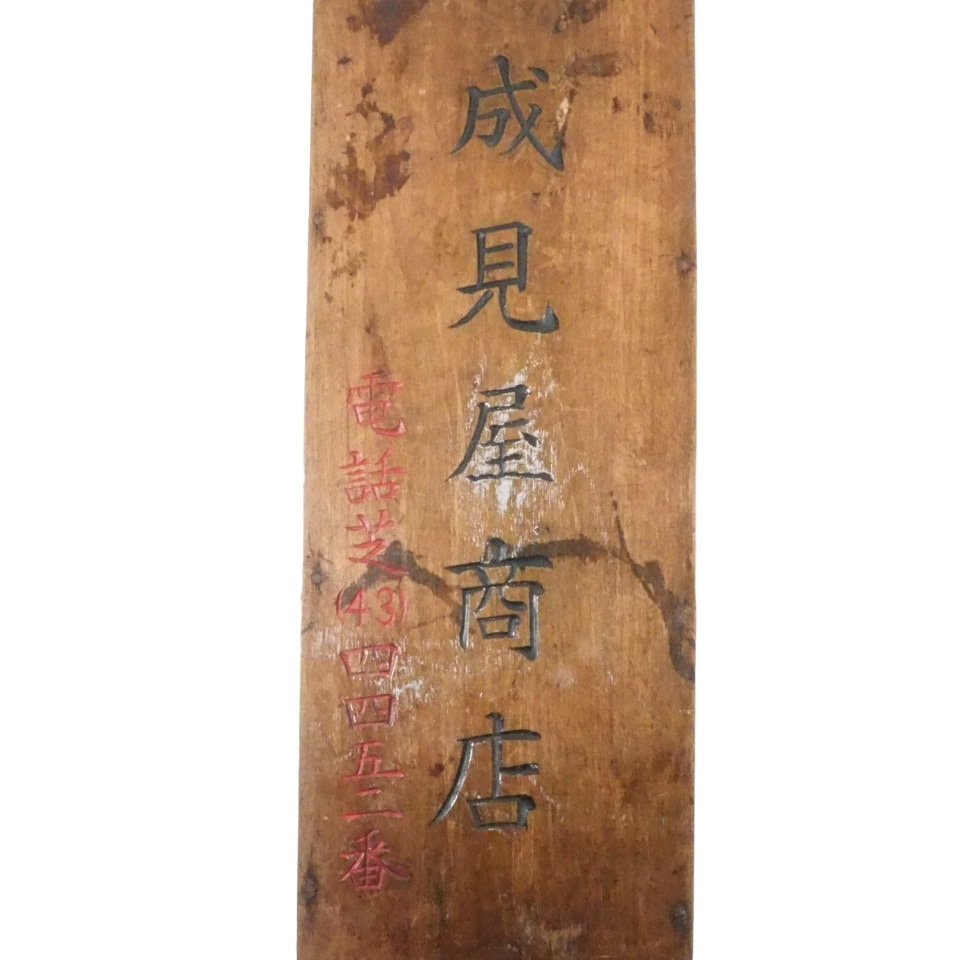 成見屋商店
電話芝(43)四四五二番